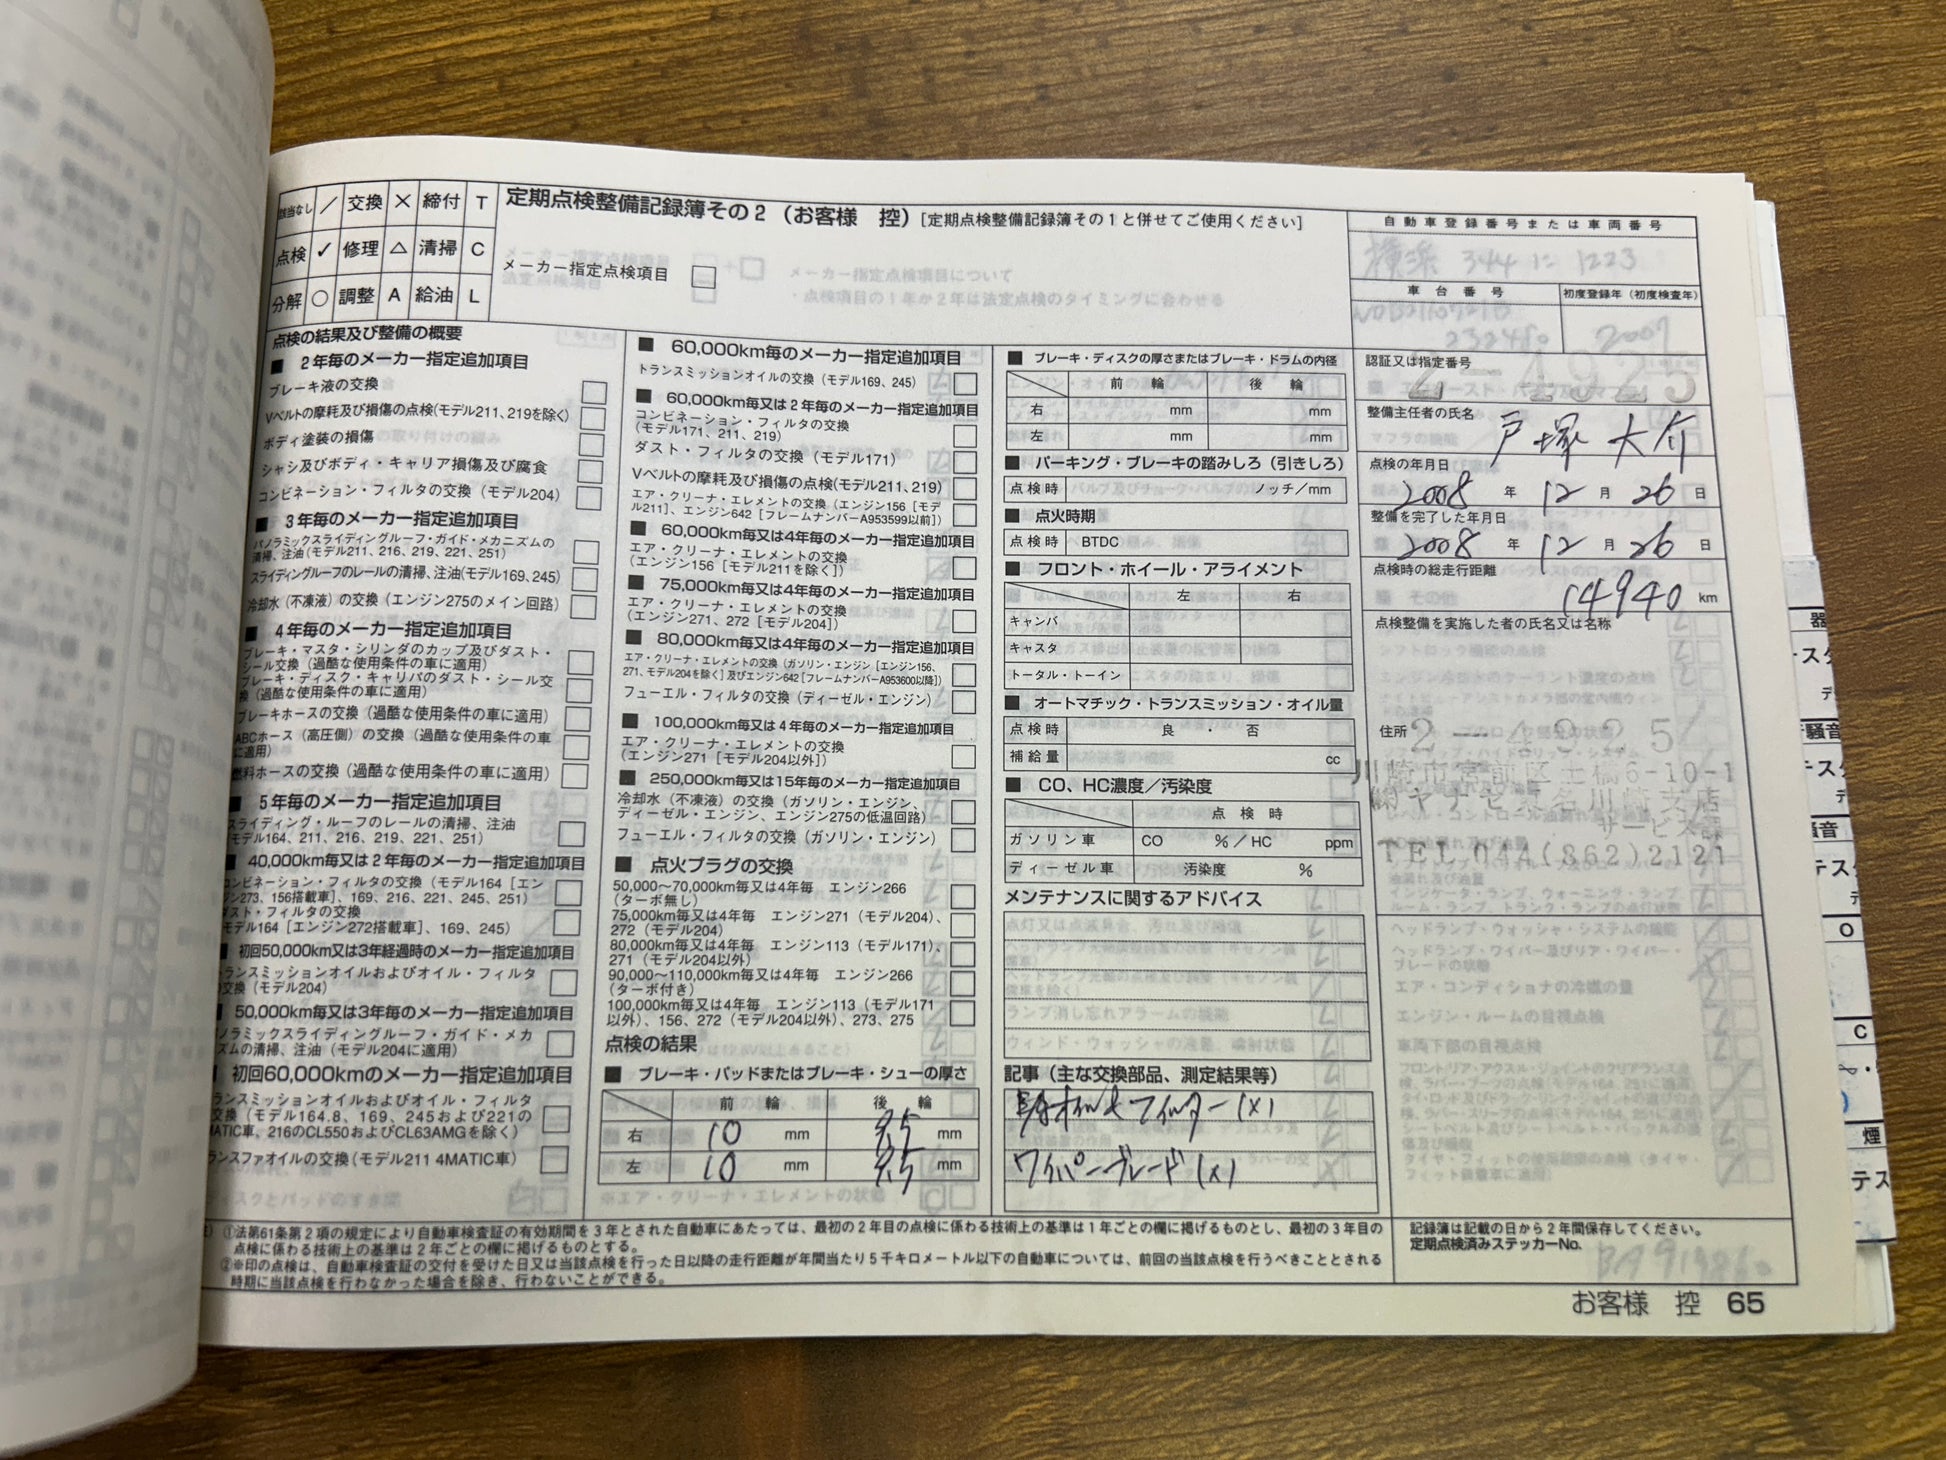 交換 × 締付 T
点検 ✓ 修理 △ 清掃 C
分解 ○ 調整 A 給油 L
定期点検整備記録簿その2（お客様　控）[定期点検整備記録簿その1と併せてご使用ください]
メーカー指定点検項目
点検の結果及び整備の概要
■ 2年毎のメーカー指定追加項目
ブレーキ液の交換
Vベルトの摩耗及び損傷の点検(モデル211､219を除く)
ボディ塗装の損傷
シャシ及びボディ・キャリア損傷及び腐食
コンビネーション・フィルタの交換（モデル204）
■ 3年毎のメーカー指定追加項目
パノラミックスライディングルーフ・ガイド・メカニズムの
清掃、注油(モデル211、216、219、221、251)
スライディングルーフのレールの清掃、注油(モデル169､245)
冷却水（不凍液）の交換（エンジン275のメイン回路）
■ 4年毎のメーカー指定追加項目
ブレーキ・マスタ・シリンダのカップ及びダスト・
シール交換（過酷な使用条件の車に適用）
ブレーキ・ディスク・キャリパのダスト・シール交
換（過酷な使用条件の車に適用）
ブレーキホースの交換（過酷な使用条件の車に適用）
ABCホース（高圧側）の交換（過酷な使用条件の車
に適用）
燃料ホースの交換（過酷な使用条件の車に適用）
■ 5年毎のメーカー指定追加項目
スライディング・ルーフのレールの清掃、注油
モデル164、211、216、219、221、251)
■ 40,000km毎又は2年毎のメーカー指定追加項目
コンビネーション・フィルタの交換（モデル164［エン
ジン273、156搭載車]、169、216、221、245、251）
ダスト・フィルタの交換
モデル164［エンジン272搭載車]、169、245）
■ 初回50,000km又は3年経過時のメーカー指定追加項目
トランスミッションオイルおよびオイル・フィルタ
の交換（モデル204）
■ 50,000km毎又は3年毎のメーカー指定追加項目
パノラミックスライディングルーフ・ガイド・メカ
ニズムの清掃、注油（モデル204に適用）
■ 初回60,000kmのメーカー指定追加項目
ランスミッションオイルおよびオイル・フィルタ
交換（モデル164.8、169、245および221の
MATIC車、216のCL550およびCL63AMGを除く）
ランスファオイルの交換（モデル211 4MATIC車）
■ 60,000km毎のメーカー指定追加項目
トランスミッションオイルの交換（モデル169、245）
■ 60,000km毎又は2年毎のメーカー指定追加項目
コンビネーション・フィルタの交換
（モデル171、211、219）
ダスト・フィルタの交換（モデル171）
Vベルトの摩耗及び損傷の点検(モデル211､219)
エア・クリーナ・エレメントの交換（エンジン156［モデ
ル211]、エンジン642［フレームナンバーA953599以前]）
■ 60,000km毎又は4年毎のメーカー指定追加項目
エア・クリーナ・エレメントの交換
（エンジン156［モデル211を除く]）
■ 75,000km毎又は4年毎のメーカー指定追加項目
エア・クリーナ・エレメントの交換
（エンジン271、272［モデル204]）
■ 80,000km毎又は4年毎のメーカー指定追加項目
エア・クリーナ・エレメントの交換（ガソリン・エンジン［エンジン156、
271、モデル204を除く］及びエンジン642［フレームナンバーA953600以降]）
フューエル・フィルタの交換（ディーゼル・エンジン）
■ 100,000km毎又は4年毎のメーカー指定追加項目
エア・クリーナ・エレメントの交換
（エンジン271［モデル204以外]）
■ 250,000km毎又は15年毎のメーカー指定追加項目
冷却水（不凍液）の交換（ガソリン・エンジン、
ディーゼル・エンジン、エンジン275の低温回路）
フューエル・フィルタの交換（ガソリン・エンジン）
■ 点火プラグの交換
50,000〜70,000km毎又は4年毎　エンジン266
（ターボ無し）
75,000km毎又は4年毎　エンジン271（モデル204）、
272（モデル204）
80,000km毎又は4年毎　エンジン113（モデル171）、
271（モデル204以外）
90,000〜110,000km毎又は4年毎　エンジン266
（ターボ付き）
100,000km毎又は4年毎　エンジン113（モデル171
以外）、156、272（モデル204以外）、273、275
点検の結果
■ ブレーキ・パッドまたはブレーキ・シューの厚さ
前　輪　後　輪
右 10 mm mm
左 10 mm mm
■ ブレーキ・ディスクの厚さまたはブレーキ・ドラムの内径
前　輪　後　輪
右 mm mm
左 mm mm
■ パーキング・ブレーキの踏みしろ（引きしろ）
点検時 ノッチ／mm
■ 点火時期
点検時 BTDC
■ フロント・ホイール・アライメント
左 右
キャンバ
キャスタ
トータル・トーイン
■ オートマチック・トランスミッション・オイル量
点検時 良 ・ 否
補給量 cc
■ CO、HC濃度／汚染度
点　検　時
ガソリン車 CO %／HC ppm
ディーゼル車 汚染度 %
メンテナンスに関するアドバイス
記事（主な交換部品、測定結果等）
フィルター(×)
ワイパーブレード(×)
自動車登録番号または車両番号
横浜 344 に 1223
車台番号 初度登録年（初度検査年）
2007
認証又は指定番号
2-4925
整備主任者の氏名
戸塚 大介
点検の年月日
2008 年 12 月 26 日
整備を完了した年月日
2008 年 12 月 26 日
点検時の総走行距離
14940 km
点検整備を実施した者の氏名又は名称
住所 2-4925
川崎市宮前区土橋6-10-1
㈱ヤナセ 東名川崎支店
サービス課
TEL 044(862)2121
①法第61条第2項の規定により自動車検査証の有効期間を3年とされた自動車にあたっては、最初の2年目の点検に係わる技術上の基準は1年ごとの欄に掲げるものとし、最初の3年目の
点検に係わる技術上の基準は2年ごとの欄に掲げるものとする。
②※印の点検は、自動車検査証の交付を受けた日又は当該点検を行った日以降の走行距離が年間当たり5千キロメートル以下の自動車については、前回の当該点検を行うべきこととされる
時期に当該点検を行わなかった場合を除き、行わないことができる。
記録簿は記載の日から2年間保存してください。
定期点検済みステッカーNo.
お客様　控　65